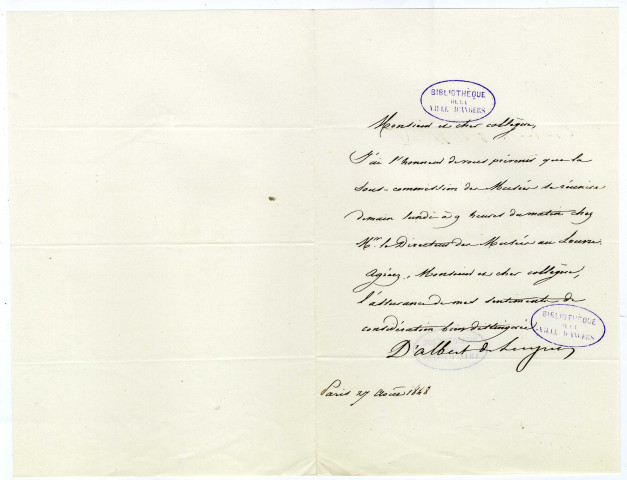 BIBLIOTHÈQUE
DE LA
VILLE D'ANGERS
Monsieur et cher collègue,
J'ai l'honneur de vous prévenir que la
sous-commission des Musées se réunira
demain lundi à 9 heures du matin chez
Mr. le Directeur des Musées au Louvre.
Agréez, Monsieur et cher collègue,
l'assurance de mes sentiments de
considération bien distinguée
BIBLIOTHÈQUE
DE LA
VILLE D'ANGERS
D'albert de Luynes
Paris 27 août 1848